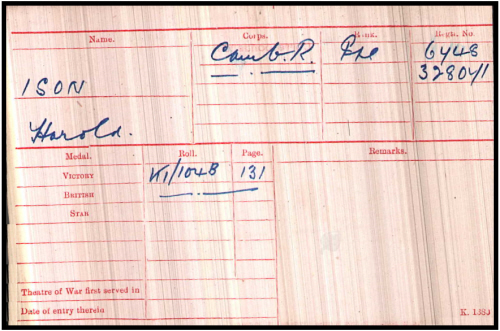 Name. Corps. Rank. Regtl. No.
ISON Camb. R. Pte 6448
328041
Harold.
Medal. Roll. Page. Remarks.
VICTORY K1/104B 131
BRITISH
STAR
Theatre of War first served in
Date of entry therein
K. 1380